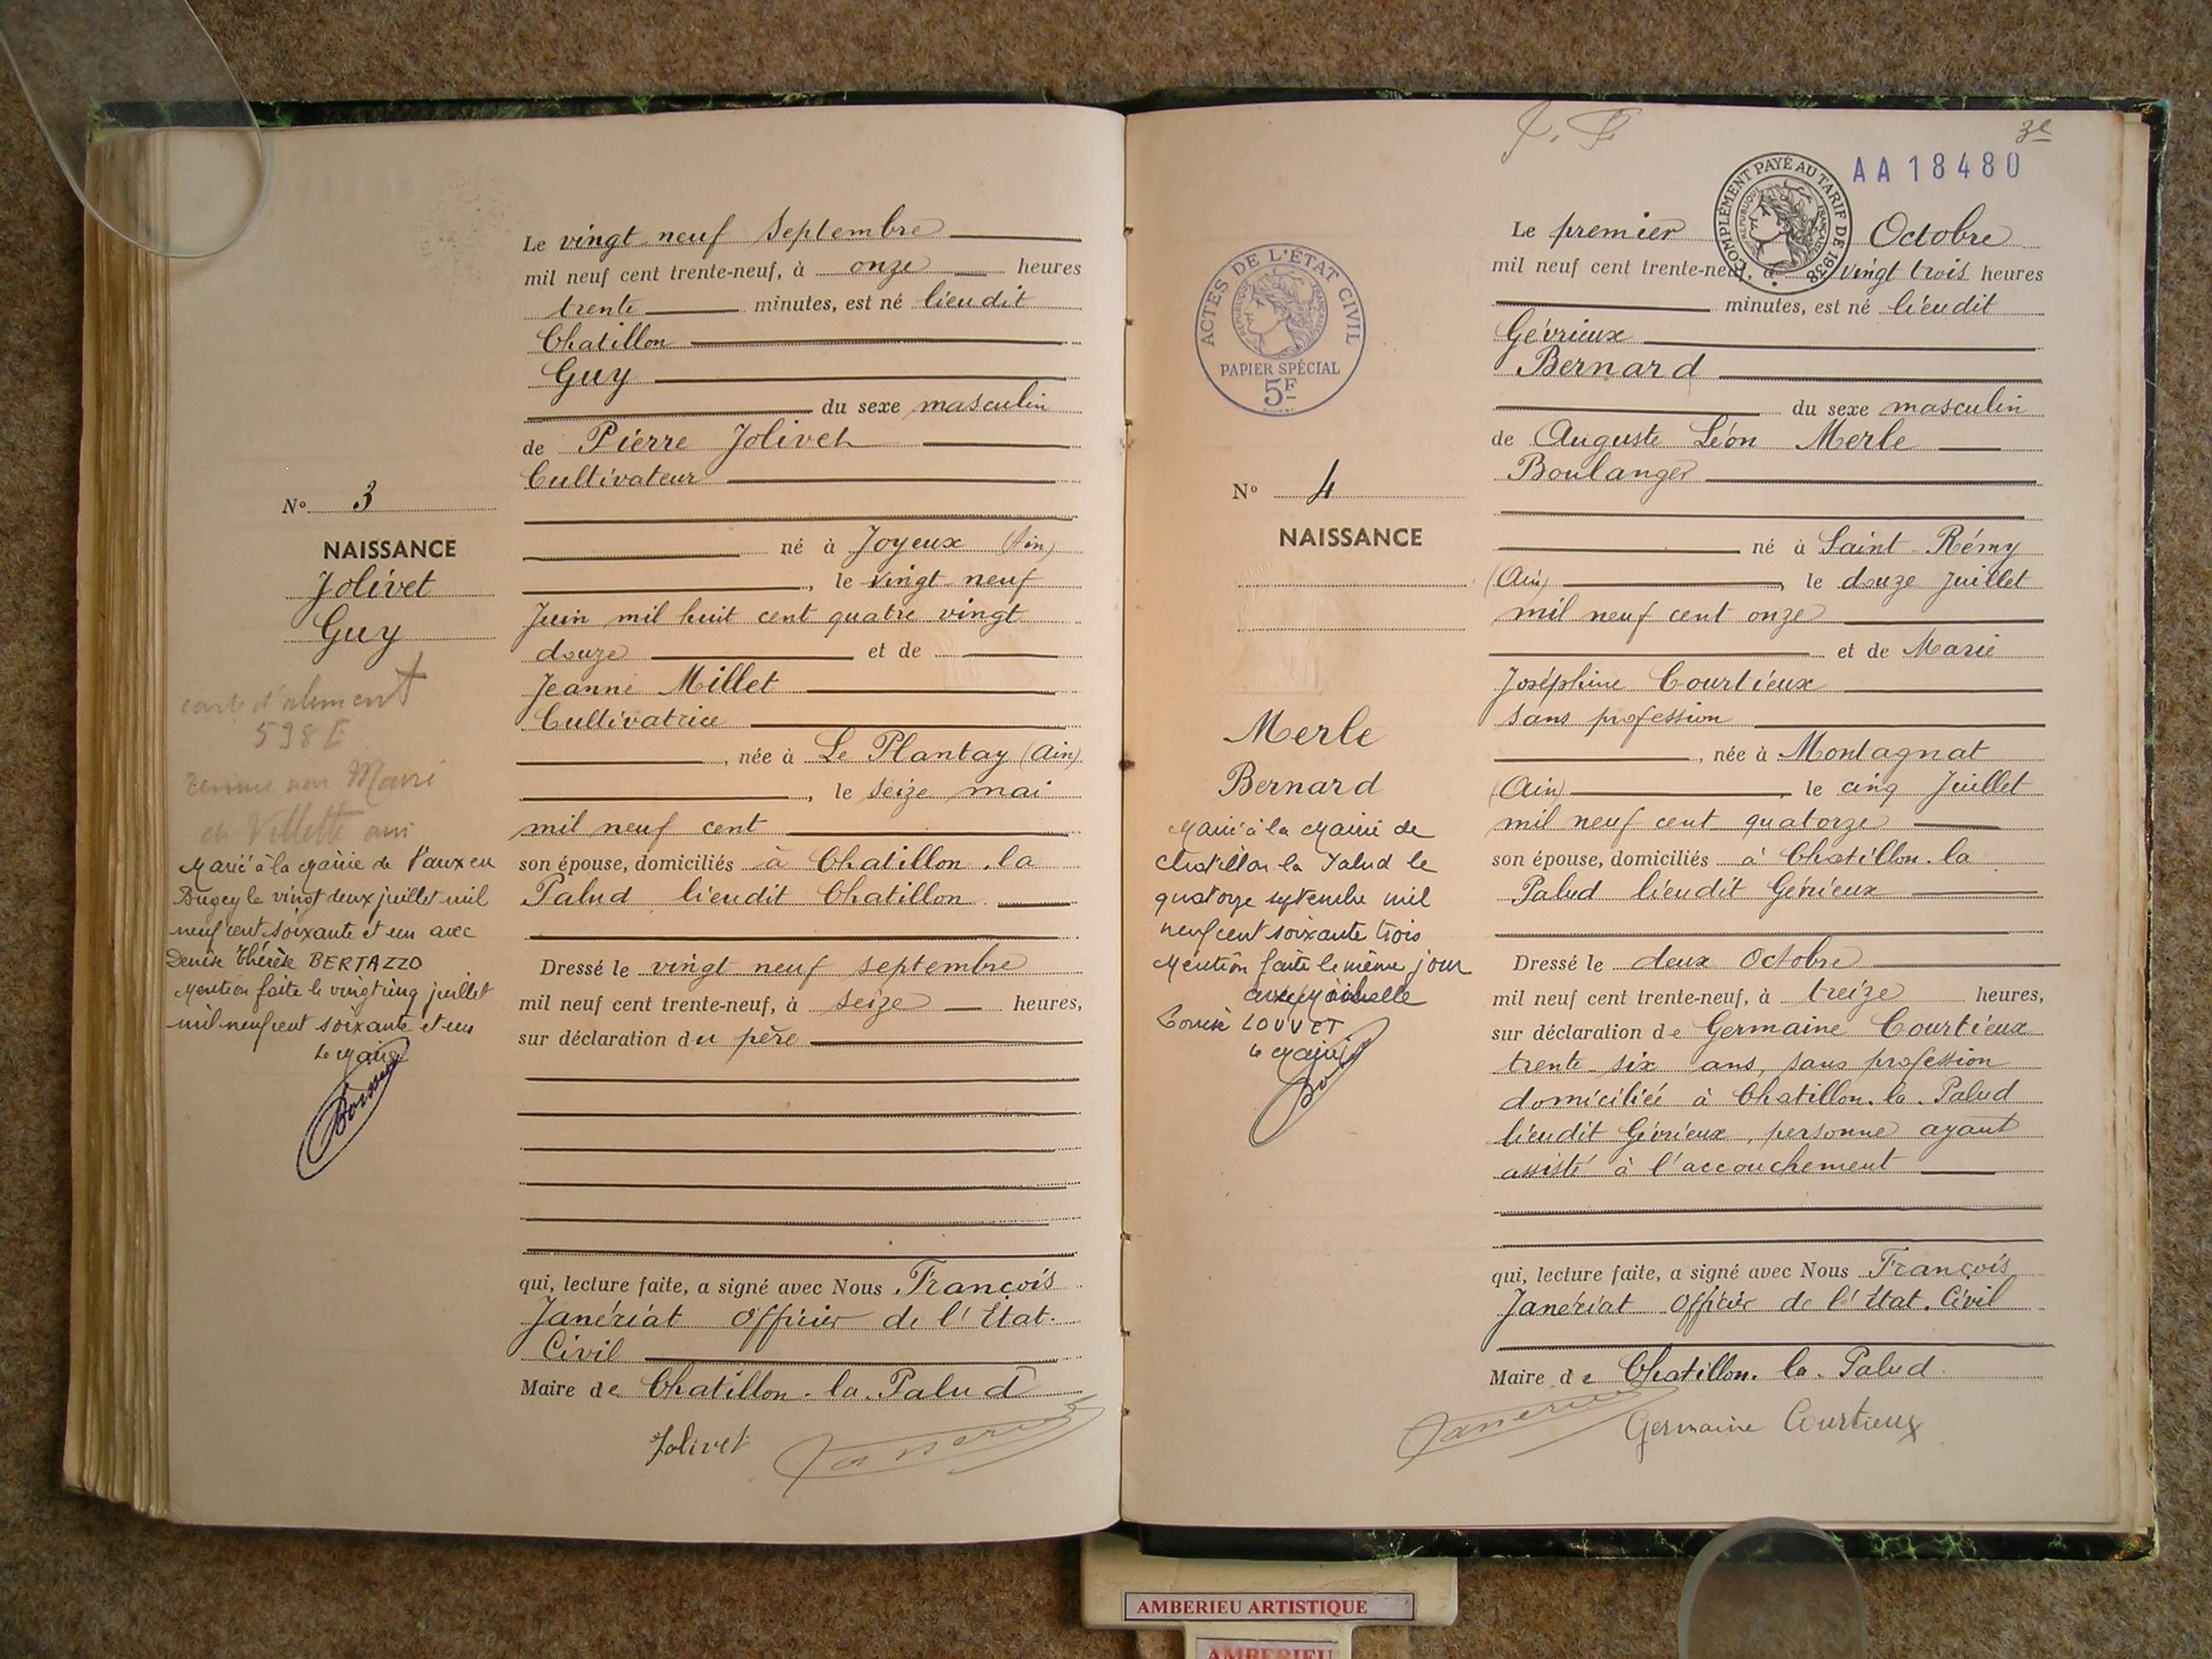 Le vingt-neuf Septembre
mil neuf cent trente-neuf, à onze heures
trente minutes, est né lieudit
Chatillon
Guy
du sexe masculin
de Pierre Jolivet
Cultivateur
né à Joyeux (Ain)
, le vingt-neuf
Juin mil huit cent quatre vingt
douze et de
Jeanne Millet
Cultivatrice
, née à Le Plantay (Ain)
, le seize mai
mil neuf cent
son épouse, domiciliés à Chatillon-la
Palud lieudit Chatillon
Dressé le vingt neuf septembre
mil neuf cent trente-neuf, à seize heures,
sur déclaration du père
qui, lecture faite, a signé avec Nous François
Janériat Officier de l'État-
Civil
Maire de Chatillon-la-Palud
Jolivet
Janeriat
No 3
NAISSANCE
Jolivet
Guy
carte d'aliment
598
Marié à la Mairie de Vaux en
Bugey le vingt deux juillet mil
neuf cent soixante et un avec
Denise Thérèse BERTAZZO
Mention faite le vingt cinq juillet
mil neuf cent soixante et un
Le Maire
3e
AA 18480
COMPLÉMENT PAYÉ AU TARIF DE 1938
RÉPUBLIQUE FRANÇAISE
ACTES DE L'ÉTAT CIVIL
RÉPUBLIQUE FRANÇAISE
PAPIER SPÉCIAL
5F
No 4
NAISSANCE
Merle
Bernard
Marié à la Mairie de
Chatillon la Palud le
quatorze septembre mil
neuf cent soixante trois
Mention faite le même jour
avec
Louise LOUVET
Le Maire
Le premier Octobre
mil neuf cent trente-neuf, à vingt trois heures
minutes, est né lieudit
Gévrieux
Bernard
du sexe masculin
de Auguste Léon Merle
Boulanger
né à Saint-Rémy
(Ain), le douze Juillet
mil neuf cent onze
et de Marie
Joséphine Courtieux
sans profession
, née à Montagnat
(Ain), le cinq Juillet
mil neuf cent quatorze
son épouse, domiciliés à Chatillon-la
Palud lieudit Gévrieux
Dressé le deux Octobre
mil neuf cent trente-neuf, à treize heures,
sur déclaration de Germaine Courtieux
trente-six ans, sans profession
domiciliée à Chatillon-la-Palud
lieudit Gévrieux, personne ayant
assisté à l'accouchement
qui, lecture faite, a signé avec Nous François
Janériat Officier de l'État-Civil
Maire de Chatillon-la-Palud
Janeriat Germaine Courtieux
AMBERIEU ARTISTIQUE
AMBERIEU